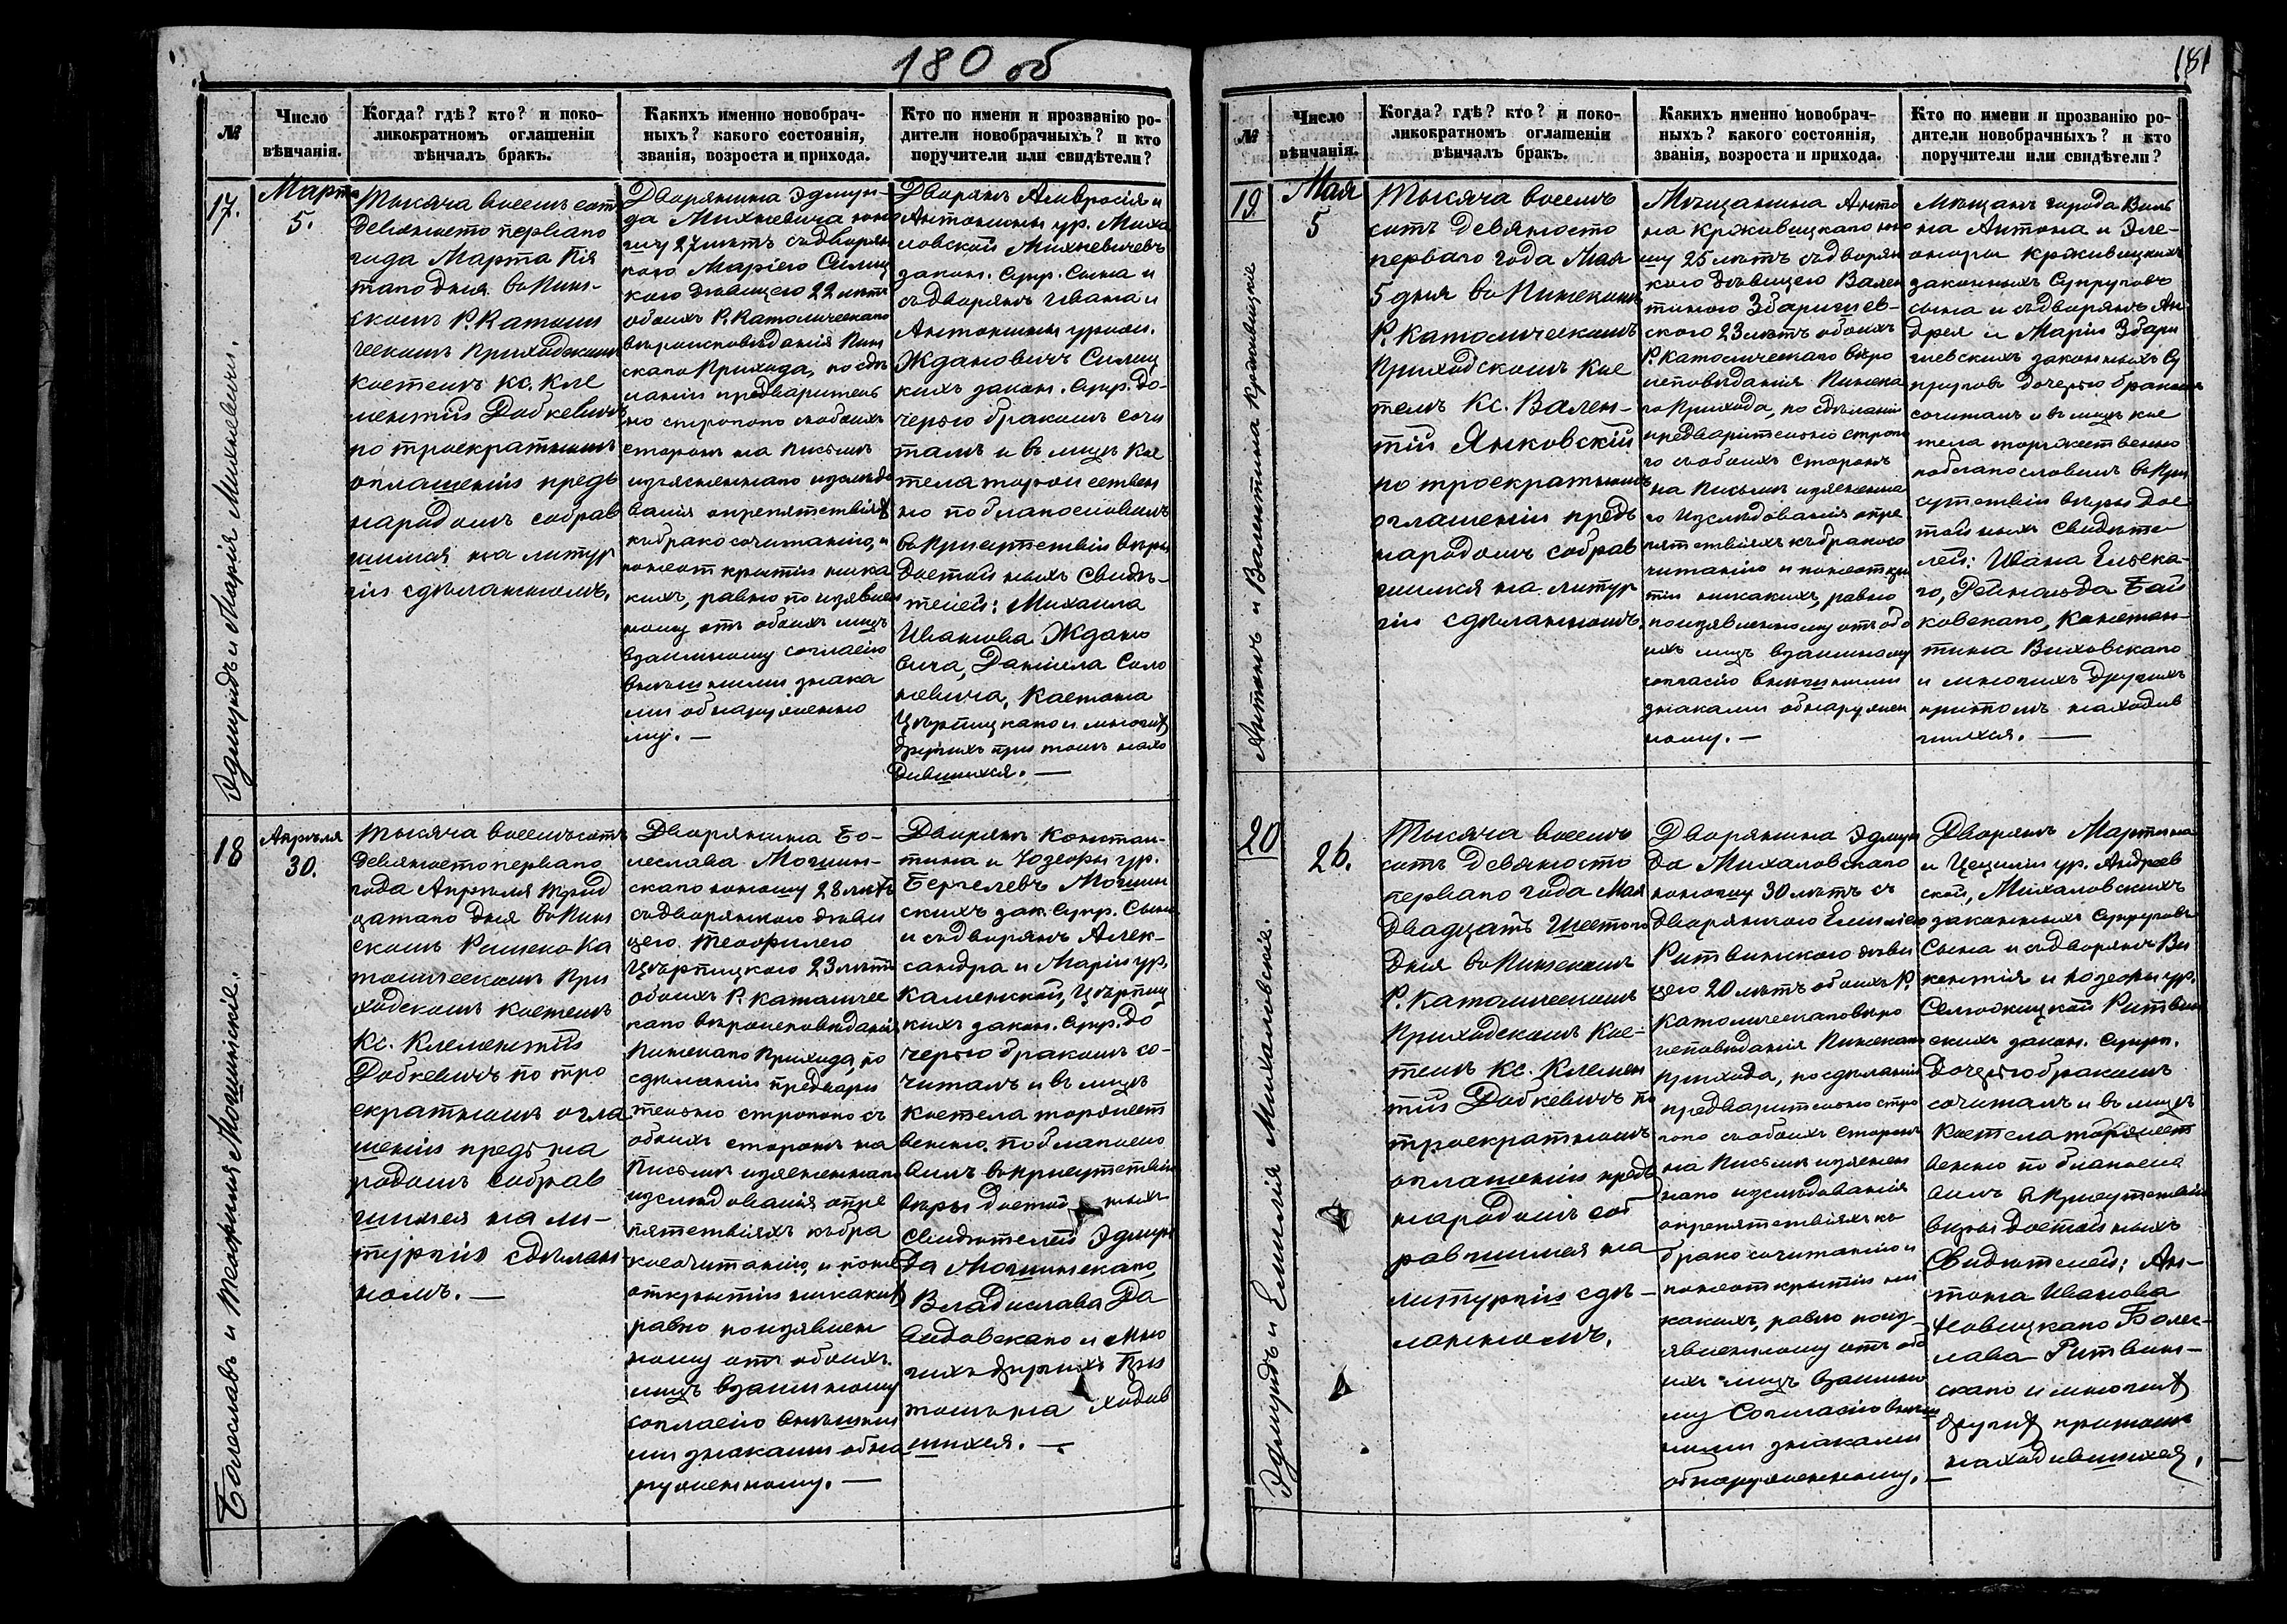 180 об
№
Число
вѣнчанія.
Когда? гдѣ? кто? и поко-
ликократномъ оглашеніи
вѣнчалъ бракъ.
Какихъ именно новобрач-
ныхъ? какого состоянія,
званія, возроста и прихода.
Кто по имени и прозванію ро-
дители новобрачныхъ? и кто
поручители или свидѣтели?
17.
Эдмундъ и Марія Михневичи.
Марта
5.
Тысяча восемьсотъ
девяносто перваго
года Марта Пя
таго дня въ Пин-
скомъ Р. Католи
ческомъ Приходскомъ
костелѣ Кс. Кле
ментій Добкевичъ
по троекратномъ
оглашеніи предъ
народомъ собрав
шимся на литур
гіи сдѣланномъ.
Дворянина Эдмун-
да Михневича юно
шу 27 лѣтъ съ дворян
кою Маріею Силиц
кою дѣвицею 22 лѣтъ
обоихъ Р. Католическаго
вѣроисповѣданія Пин
скаго Прихода, по сдѣ
ланіи предваритель
но строгого съ обоихъ
сторонъ на письмѣ
изъясненнаго изслѣдо
ванія о препятствіяхъ
къ бракосочитанію, и
понеоткрытіи ника
кихъ, равно по изъявлен
ному отъ обоихъ лицъ
взаимному согласію
внѣшними знака
ми обнаруженно
му. —
Дворянъ Амвросія и
Антонины ур. Миха
ловской Михневичевъ
закон. Супр. Сына и
съ дворянъ Ивана и
Антонины урожд.
Ждановичъ Силиц
кихъ закон. Супр. До-
черью бракомъ сочи
талъ и въ лицѣ Кос
тела торжествен
но поблагословилъ
въ присутствіи вѣры
достойныхъ Свидѣ-
телей: Михаила
Иванова Ждано
вича, Даніила Соло
невича, Каетана
Цѣрпицкаго и многихъ
другихъ при томъ нахо
дившихся. —
18
Болеславъ и Теофилія Мошинскіе.
Апрѣля
30.
Тысяча восемьсотъ
девяносто перваго
года Апрѣля трид
цатаго дня въ Пин
скомъ Римско-Ка
толическомъ При
ходскомъ костелѣ
Кс. Клементій
Добкевичъ по тро
екратномъ огла
шеніи предъ на
родомъ собрав
шимся на ли-
тургіи сдѣлан-
номъ. —
Дворянина Бо-
леслава Мошин-
скаго юношу 28 лѣтъ
съ дворянкою дѣви
цею Теофилею
Цѣрпицкою 23 лѣтъ
обоихъ Р. Католичес
каго вѣроисповѣданія
Пинскаго Прихода, по
сдѣланіи предвари
тельно строгого съ
обоихъ сторонъ на
Письмѣ изъясненнаго
изслѣдованія о пре
пятствіяхъ къ бра
косочитанію, и поне
открытіи никакихъ
равно по изъявлен
ному отъ обоихъ
лицъ взаимному
согласію внѣшни
ми знаками обна
руженному. —
Дворянъ Констан-
тина и Юзефы ур.
Мошин
скихъ зак. Супр. Сына
и съ дворянъ Алек-
сандра и Маріи ур.
Каменской, Цѣрпиц
кихъ закон. Супр. До
черью бракомъ со-
читалъ и въ лицѣ
Костела торжест
венно поблагосло
вилъ въ присутствіи
вѣры достойныхъ
Свидѣтелей Эдмун
да Мошинскаго,
Владислава Да
видовскаго и мно
гихъ другихъ при
томъ находив
шихся. —
181
№
Число
вѣнчанія.
Когда? гдѣ? кто? и поко-
ликократномъ оглашеніи
вѣнчалъ бракъ.
Какихъ именно новобрач-
ныхъ? какого состоянія,
званія, возроста и прихода.
Кто по имени и прозванію ро-
дители новобрачныхъ? и кто
поручители или свидѣтели?
19
Антонъ и Валентина Крживицкіе
Мая
5
Тысяча восемь
сотъ Девяносто
перваго года Мая
5 дня въ Пинскомъ
Р. Католическомъ
Приходскомъ кос
телѣ Кс. Вален-
тій Янковскій
по троекратномъ
оглашеніи предъ
народомъ собрав
шимся на литур
гіи сдѣланномъ.
Мѣщанина Анто
на Крживицкаго юно
шу 25 лѣтъ съ дворян
кою дѣвицею Вален
тиною Збаржев-
скою 23 лѣтъ обоихъ
Р. Католическаго вѣро
исповѣданія Пинска
го Прихода, по сдѣланіи
предварительно строго
го съ обоихъ сторонъ
на письмѣ изъясненна
го изслѣдованія о пре
пятствіяхъ къ бракосо
читанію и понеоткры
тіи никакихъ, равно
по изъявленному отъ обо
ихъ лицъ взаимному
согласію внѣшними
знаками обнаружен
ному. —
Мѣщанъ города Виль
на Антона и Эле-
оноры Крживицкихъ
законныхъ Супруговъ
сына и съ дворянъ Ан-
дрея и Маріи Збари
гіевскихъ законныхъ Су
пруговъ дочерью бракомъ
сочиталъ и въ лицѣ кос
тела торжественно
поблагословилъ въ при
сутствіи вѣры дос
тойныхъ свидѣте
лей: Ивана Ельска-
го, Рейнольда Бай
ковскаго, Констан-
тина Виховскаго
и многихъ другихъ
притомъ находив
шихся. —
20
Эдмундъ и Емилія Михаловскіе.
26.
Тысяча восемь
сотъ Девяносто
перваго года Мая
Двадцать Шестого
Дня въ Пинскомъ
Р. Католическомъ
Приходскомъ Кос-
телѣ Кс. Клемен
тій Добкевичъ по
троекратномъ
оглашеніи предъ
народомъ соб
равшимся на
литургіи сдѣ-
ланномъ.
Дворянина Эдмун
да Михаловскаго
юношу 30 лѣтъ съ
Дворянкою Емиліею
Ритвинскою дѣви
цею 20 лѣтъ обоихъ Р.
Католическаго вѣро
исповѣданія Пинскаго
Прихода, по сдѣланіи
предварительно стро
гого съ обоихъ сторонъ
на Письмѣ изъяснен
наго изслѣдованія
о препятствіяхъ къ
бракосочитанію и
понеоткрытіи ни
какихъ, равно по из
явленному отъ обо
ихъ лицъ взаимно
му Согласію внѣш
ними знаками
обнаруженному. —
Дворянъ Мартина
и Цециліи ур. Андреев
ской, Михаловскихъ
законныхъ Супруговъ
Сына и съ дворянъ Ви
кентія и Юзефы ур.
Ритвин
скихъ закон. Супр.
Дочерью бракомъ
сочиталъ и въ лицѣ
Костела торжест
венно поблагосло
вилъ въ присутствіи
вѣры достойныхъ
Свидѣтелей: Ан-
тона Иванова
Новицкаго Болес-
лава Ритвин-
скаго и многихъ
другихъ притомъ
находившихся.